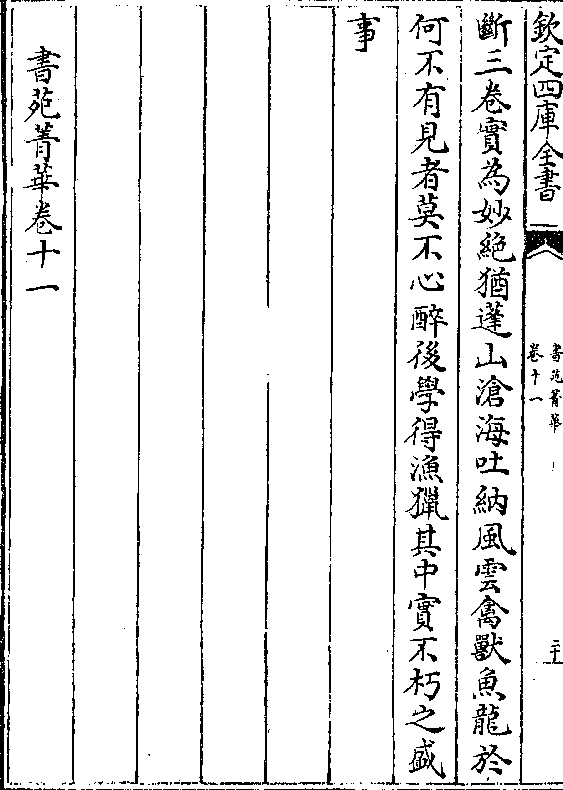 欽定四庫全書
書苑菁華
卷十一
二十
斷三卷實為妙絶猶蓬山滄海吐納風雲禽獸魚龍於
何不有見者莫不心醉後學得漁獵其中實不朽之盛
事
書苑菁華卷十一